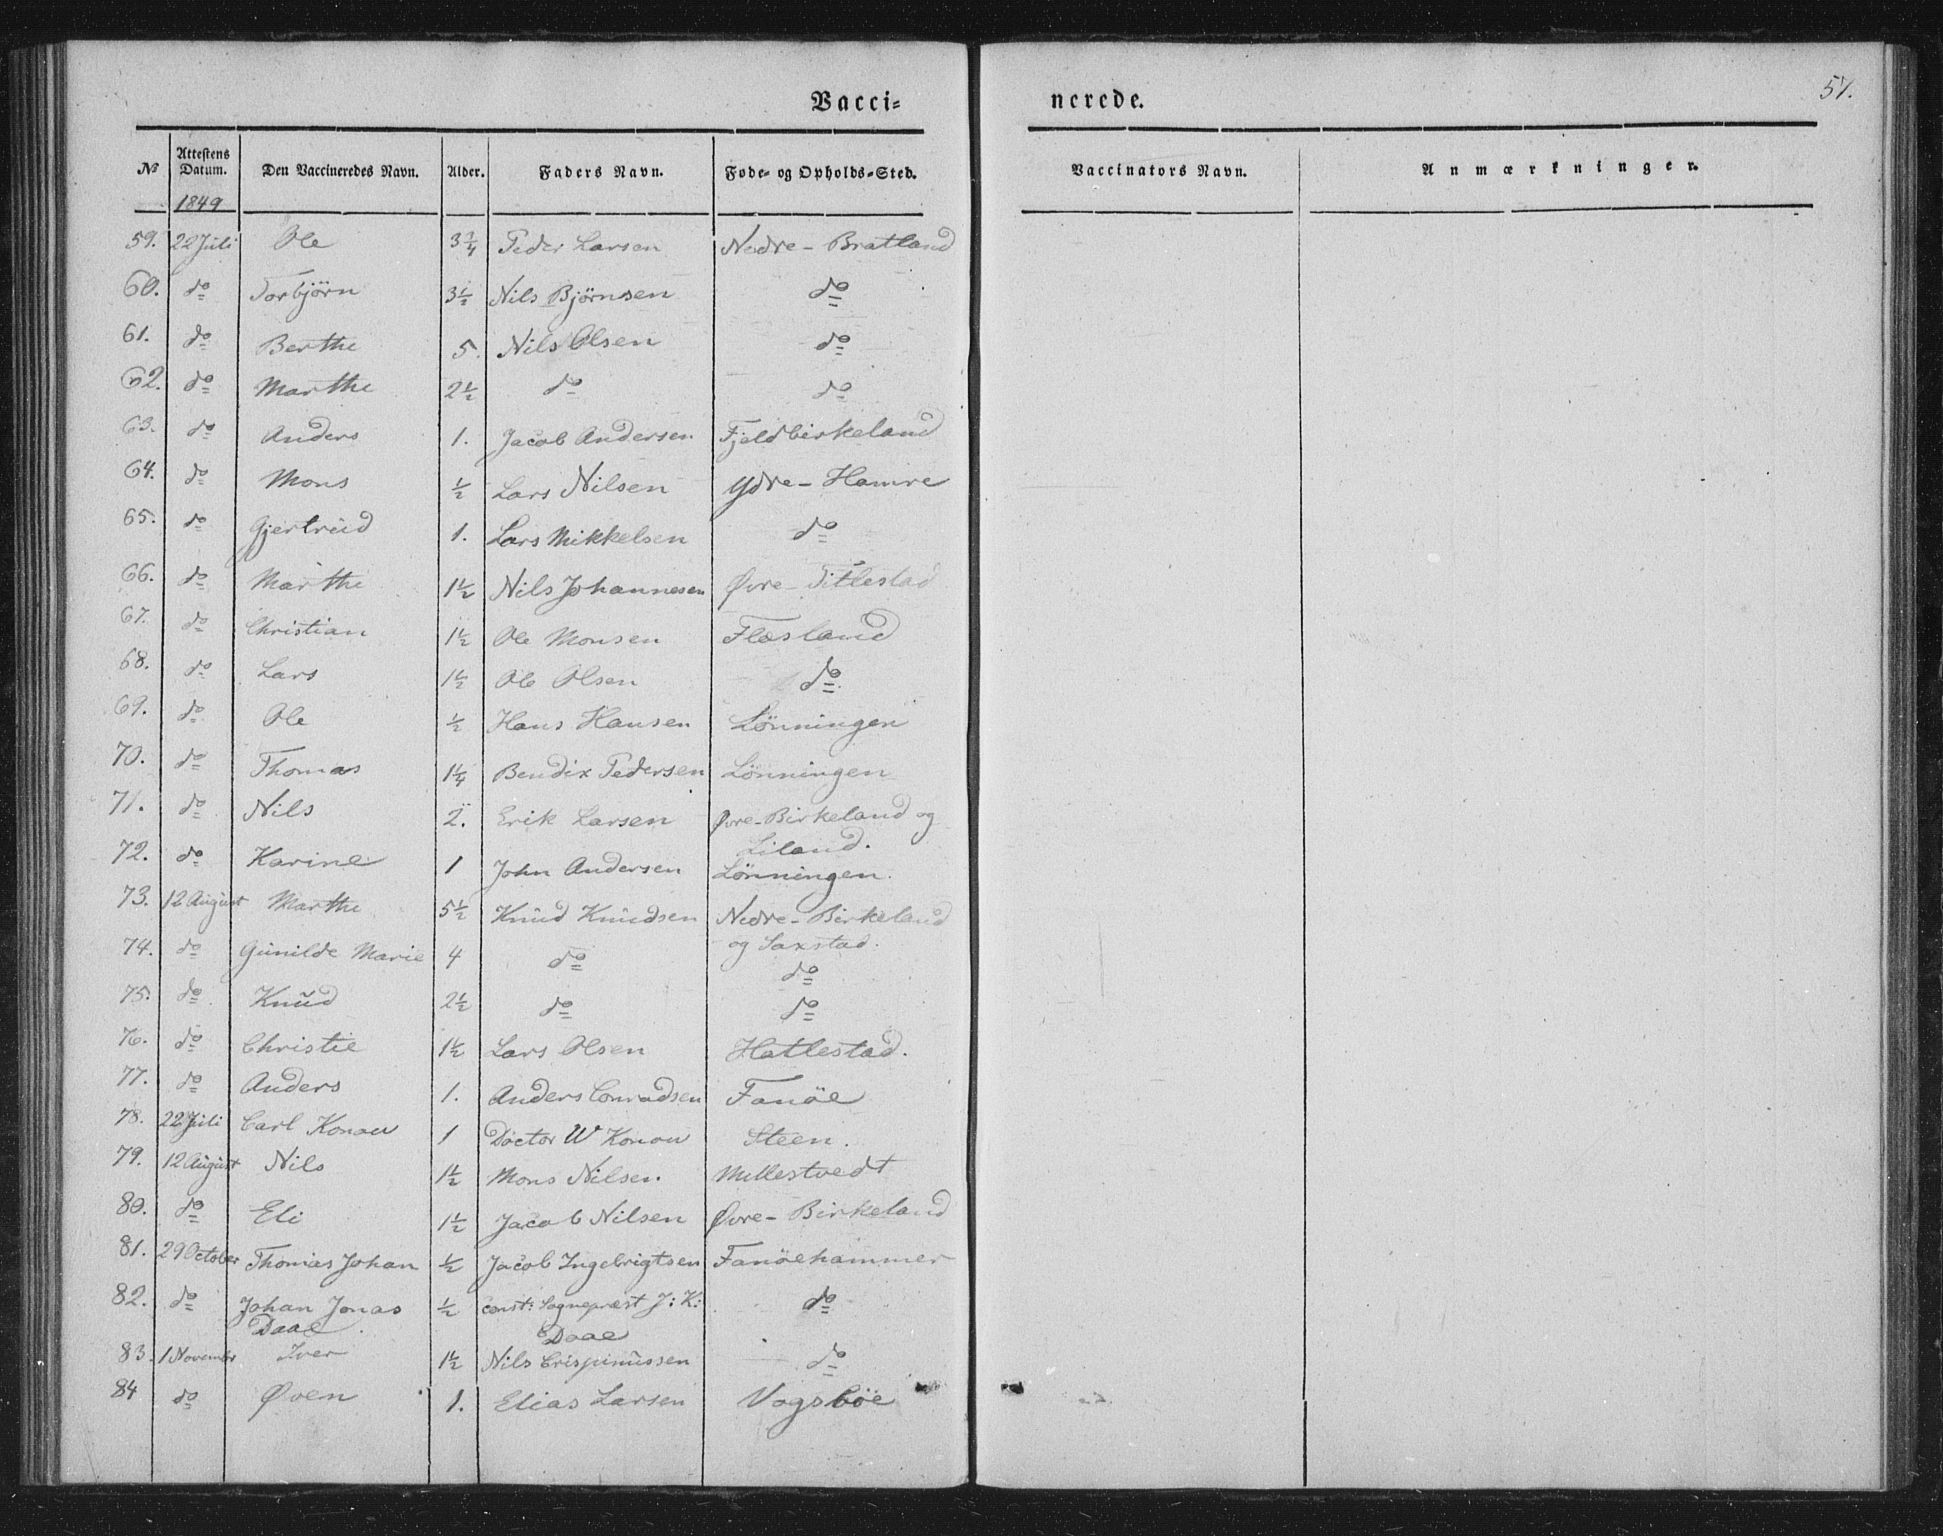 Vacci= nerede. 57.
№ Attestens Datum. Den Vaccineredes Navn. Alder. Faders Navn. Føde- og Opholds-Sted. Vaccinators Navn. Anmærkninger.
1849
59. 22 Juli Ole 3 1/4 Peder Larsen Nedre-Bratland
60. do Torbjörn 3½ Nils Björnsen do
61. do Berthe 5. Nils Olsen do
62. do Marthe 2½ do do
63. do Anders 1. Jacob Andersen Fjeldbirkeland
64. do Mons ½ Lars Nilsen Ydre-Hamre
65. do Gjertrüd 1. Lars Mikkelsen do
66. do Marthe 1½ Nils Johannesen Øvre-Titlestad
67. do Christian 1½ Ole Monsen Flæsland
68. do Lars 1½ Ole Olsen do
69. do Ole ½ Hans Hansen Lönningen
70. do Thomas 1¼ Bendix Pedersen Lönningen
71. do Nils 2. Erik Larsen Øvre-Birkeland og
Liland.
72. do Karine 1 John Andersen Lönningen.
73. 12 Augüst Marthe 5½ Knüd Knüdsen Nedre-Birkeland
og Saxstad.
74. do Günilde Marie 4 do do
75. do Knüd 2½ do do
76. do Christie 1½ Lars Olsen Hatlestad.
77. do Anders 1. Anders Conradsen Fanöe
78. 22 Juli Carl Konow 1 Doctor W Konow Steen.
79. 12 Augüst Nils 1½ Mons Nilsen. Midlestvedt
80. do Eli 1½ Jacob Nilsen Øvre-Birkeland
81. 29 October Thomas Johan ½ Jacob Ingebrigtsen Fanöehammer
82. do Johan Jonas ½ const: Sognepræst J: K: do
Daae. Daae
83. 1 Novembr Iver 1½ Nils Crispinüssen do
84 do Øven 1. Elias Larsen Vogsböe